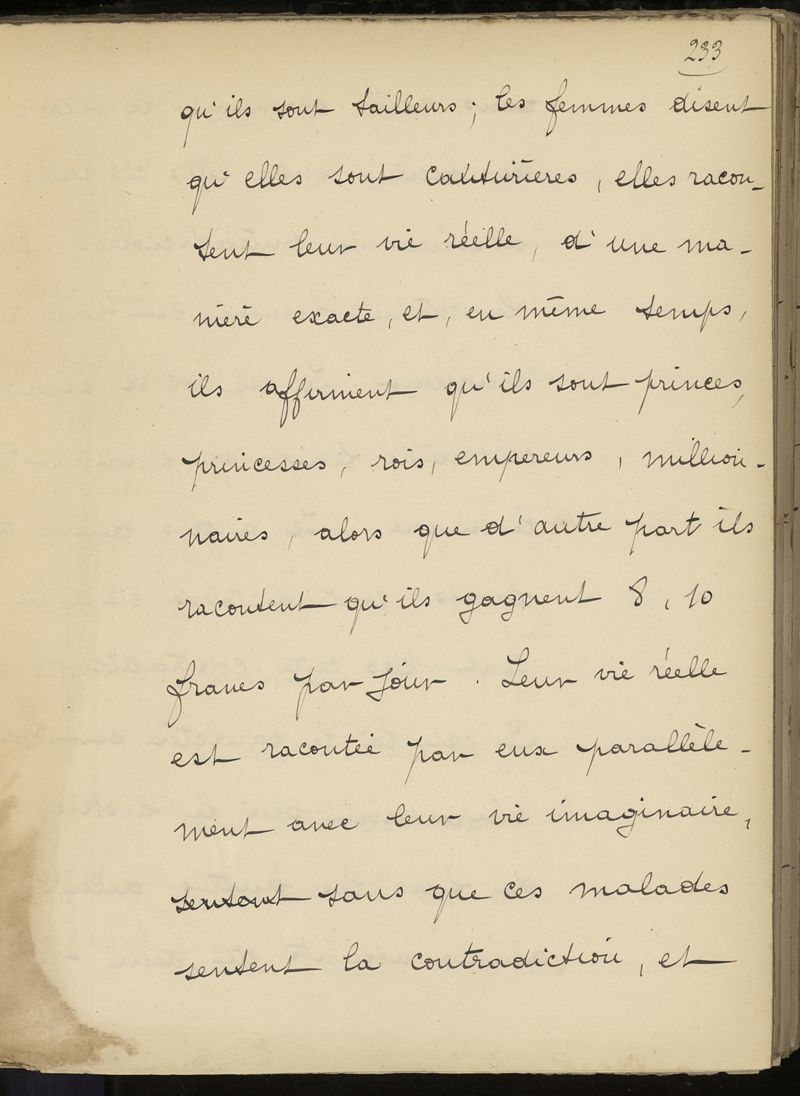 233
qu'ils sont tailleurs ; les femmes disent
qu'elles sont couturières, elles racon-
tent leur vie réelle, d'une ma-
nière exacte, et, en même temps,
ils affirment qu'ils sont princes,
princesses, rois, empereurs, million-
naires, alors que d'autre part ils
racontent qu'ils gagnent 8, 10
francs par jour. Leur vie réelle
est racontée par eux parallèle-
ment avec leur vie imaginaire,
sans que ces malades
sentent la contradiction, et